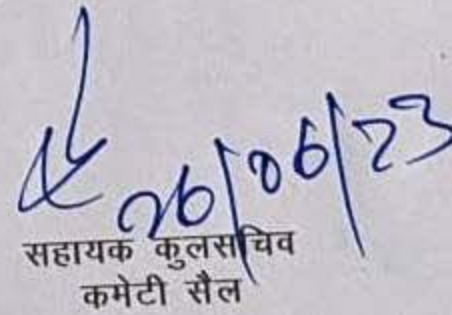 26/06/23
सहायक कुलसचिव
कमेटी सैल